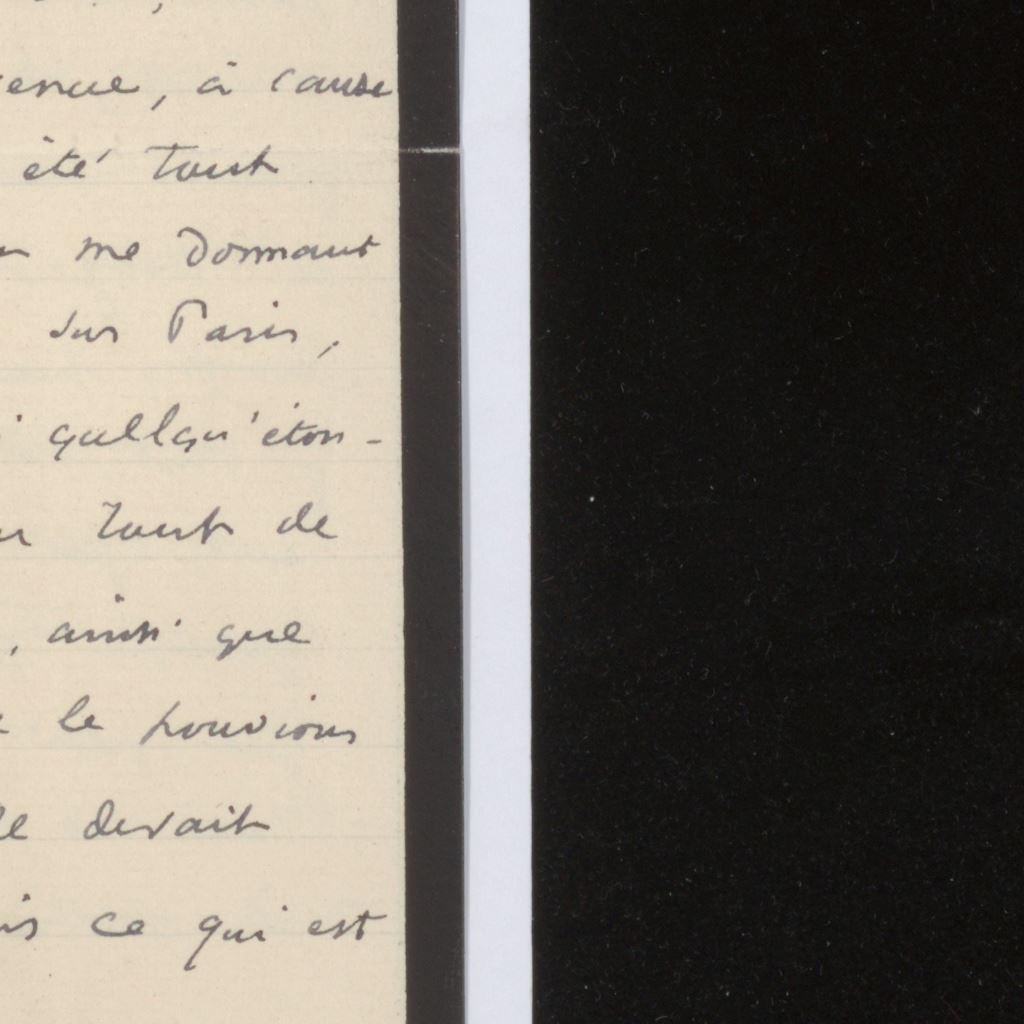 à cause
été tout
me donnant
sur Paris,
quelqu'éton-
tout de
, ainsi que
le pouvions
devait
ce qui est